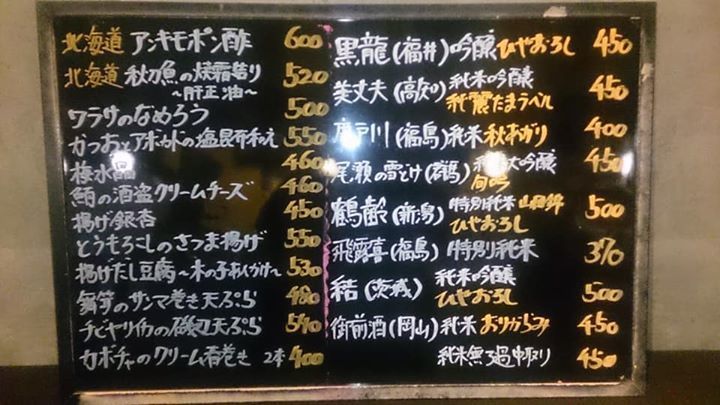 北海道 アンキモポン酢 600
北海道 秋刀魚の焼霜造り 520
～肝正油～
ワラサのなめろう 500
かつおとアボカドの塩昆布和え 550
梅水晶 460
鮪の酒盗クリームチーズ 460
揚げ銀杏 450
とうもろこしのさつま揚げ 550
揚げだし豆腐～木の子あんかけ～ 530
舞茸のサンマ巻き天ぷら 480
チビヤリイカの磯辺天ぷら 540
カボチャのクリーム春巻き 2本 400
黒龍(福井)吟醸ひやおろし 450
美丈夫(高知)純米吟醸 450
純麗たまラベル
戸川(福島)純米秋あがり 400
尾瀬の雪どけ 大吟醸 450
鶴齢(新潟)特別純米 山田錦 500
ひやおろし
飛露喜(福島)特別純米 370
結(茨城)純米吟醸 500
ひやおろし
御前酒(岡山)純米おりがらみ 450
純米無ろ過中取り 450